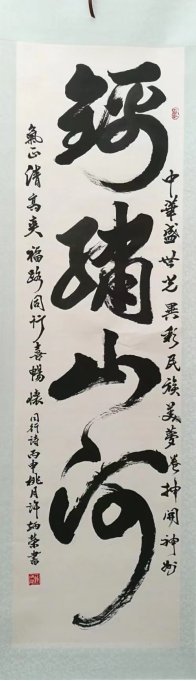 錦繡山河
中華盛世光異彩民族美夢卷抻開神州
氣正清高爽福路同行喜暢懷同行詩丙申桃月許炳榮書